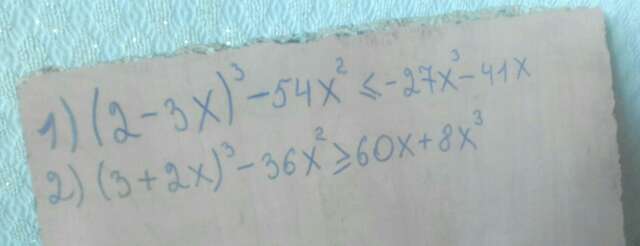 1) (2-3x)³-54x²≤-27x³-41x
2) (3+2x)³-36x²≥60x+8x³